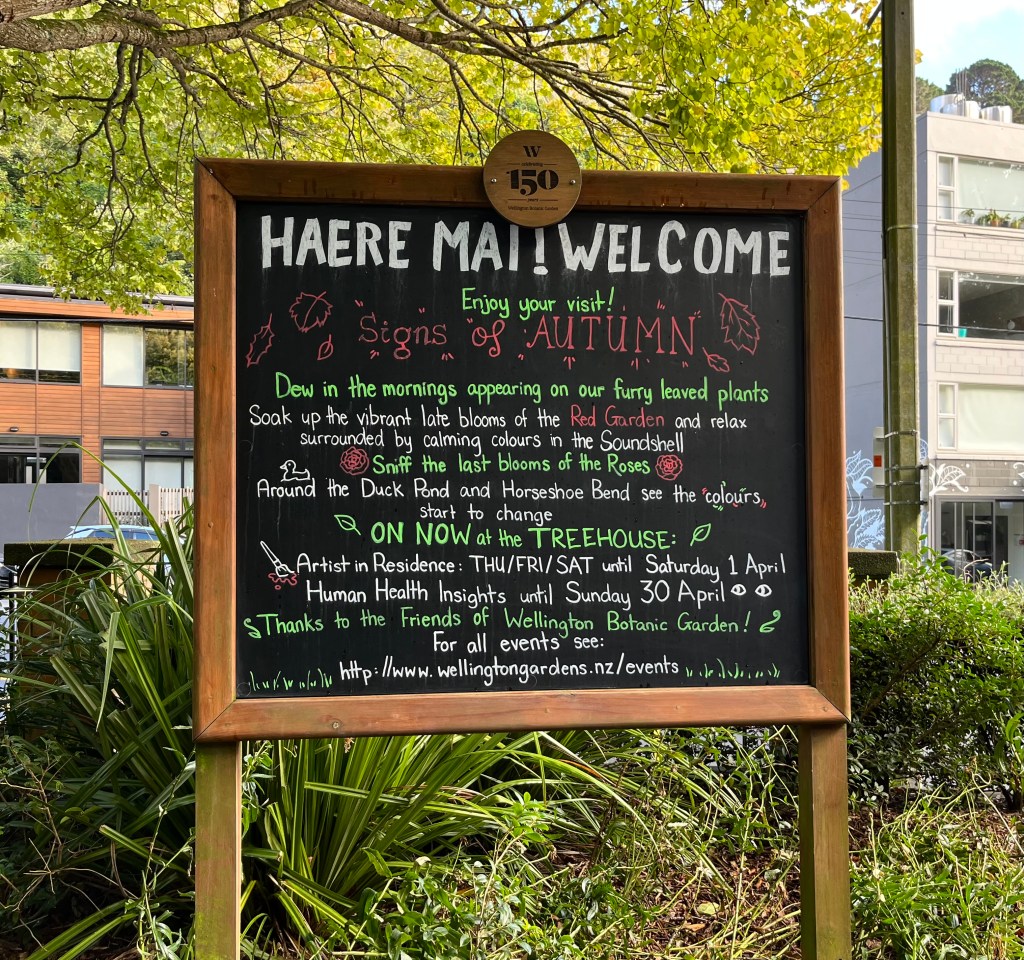 W
celebrating
150
years
Wellington Botanic Garden
HAERE MAI! WELCOME
Enjoy your visit!
Signs of AUTUMN
Dew in the mornings appearing on our furry leaved plants
Soak up the vibrant late blooms of the Red Garden and relax
surrounded by calming colours in the Soundshell
Sniff the last blooms of the Roses
Around the Duck Pond and Horseshoe Bend see the "colours"
start to change
ON NOW at the TREEHOUSE:
Artist in Residence: THU/FRI/SAT until Saturday 1 April
Human Health Insights until Sunday 30 April
Thanks to the Friends of Wellington Botanic Garden!
For all events see:
http://www.wellingtongardens.nz/events